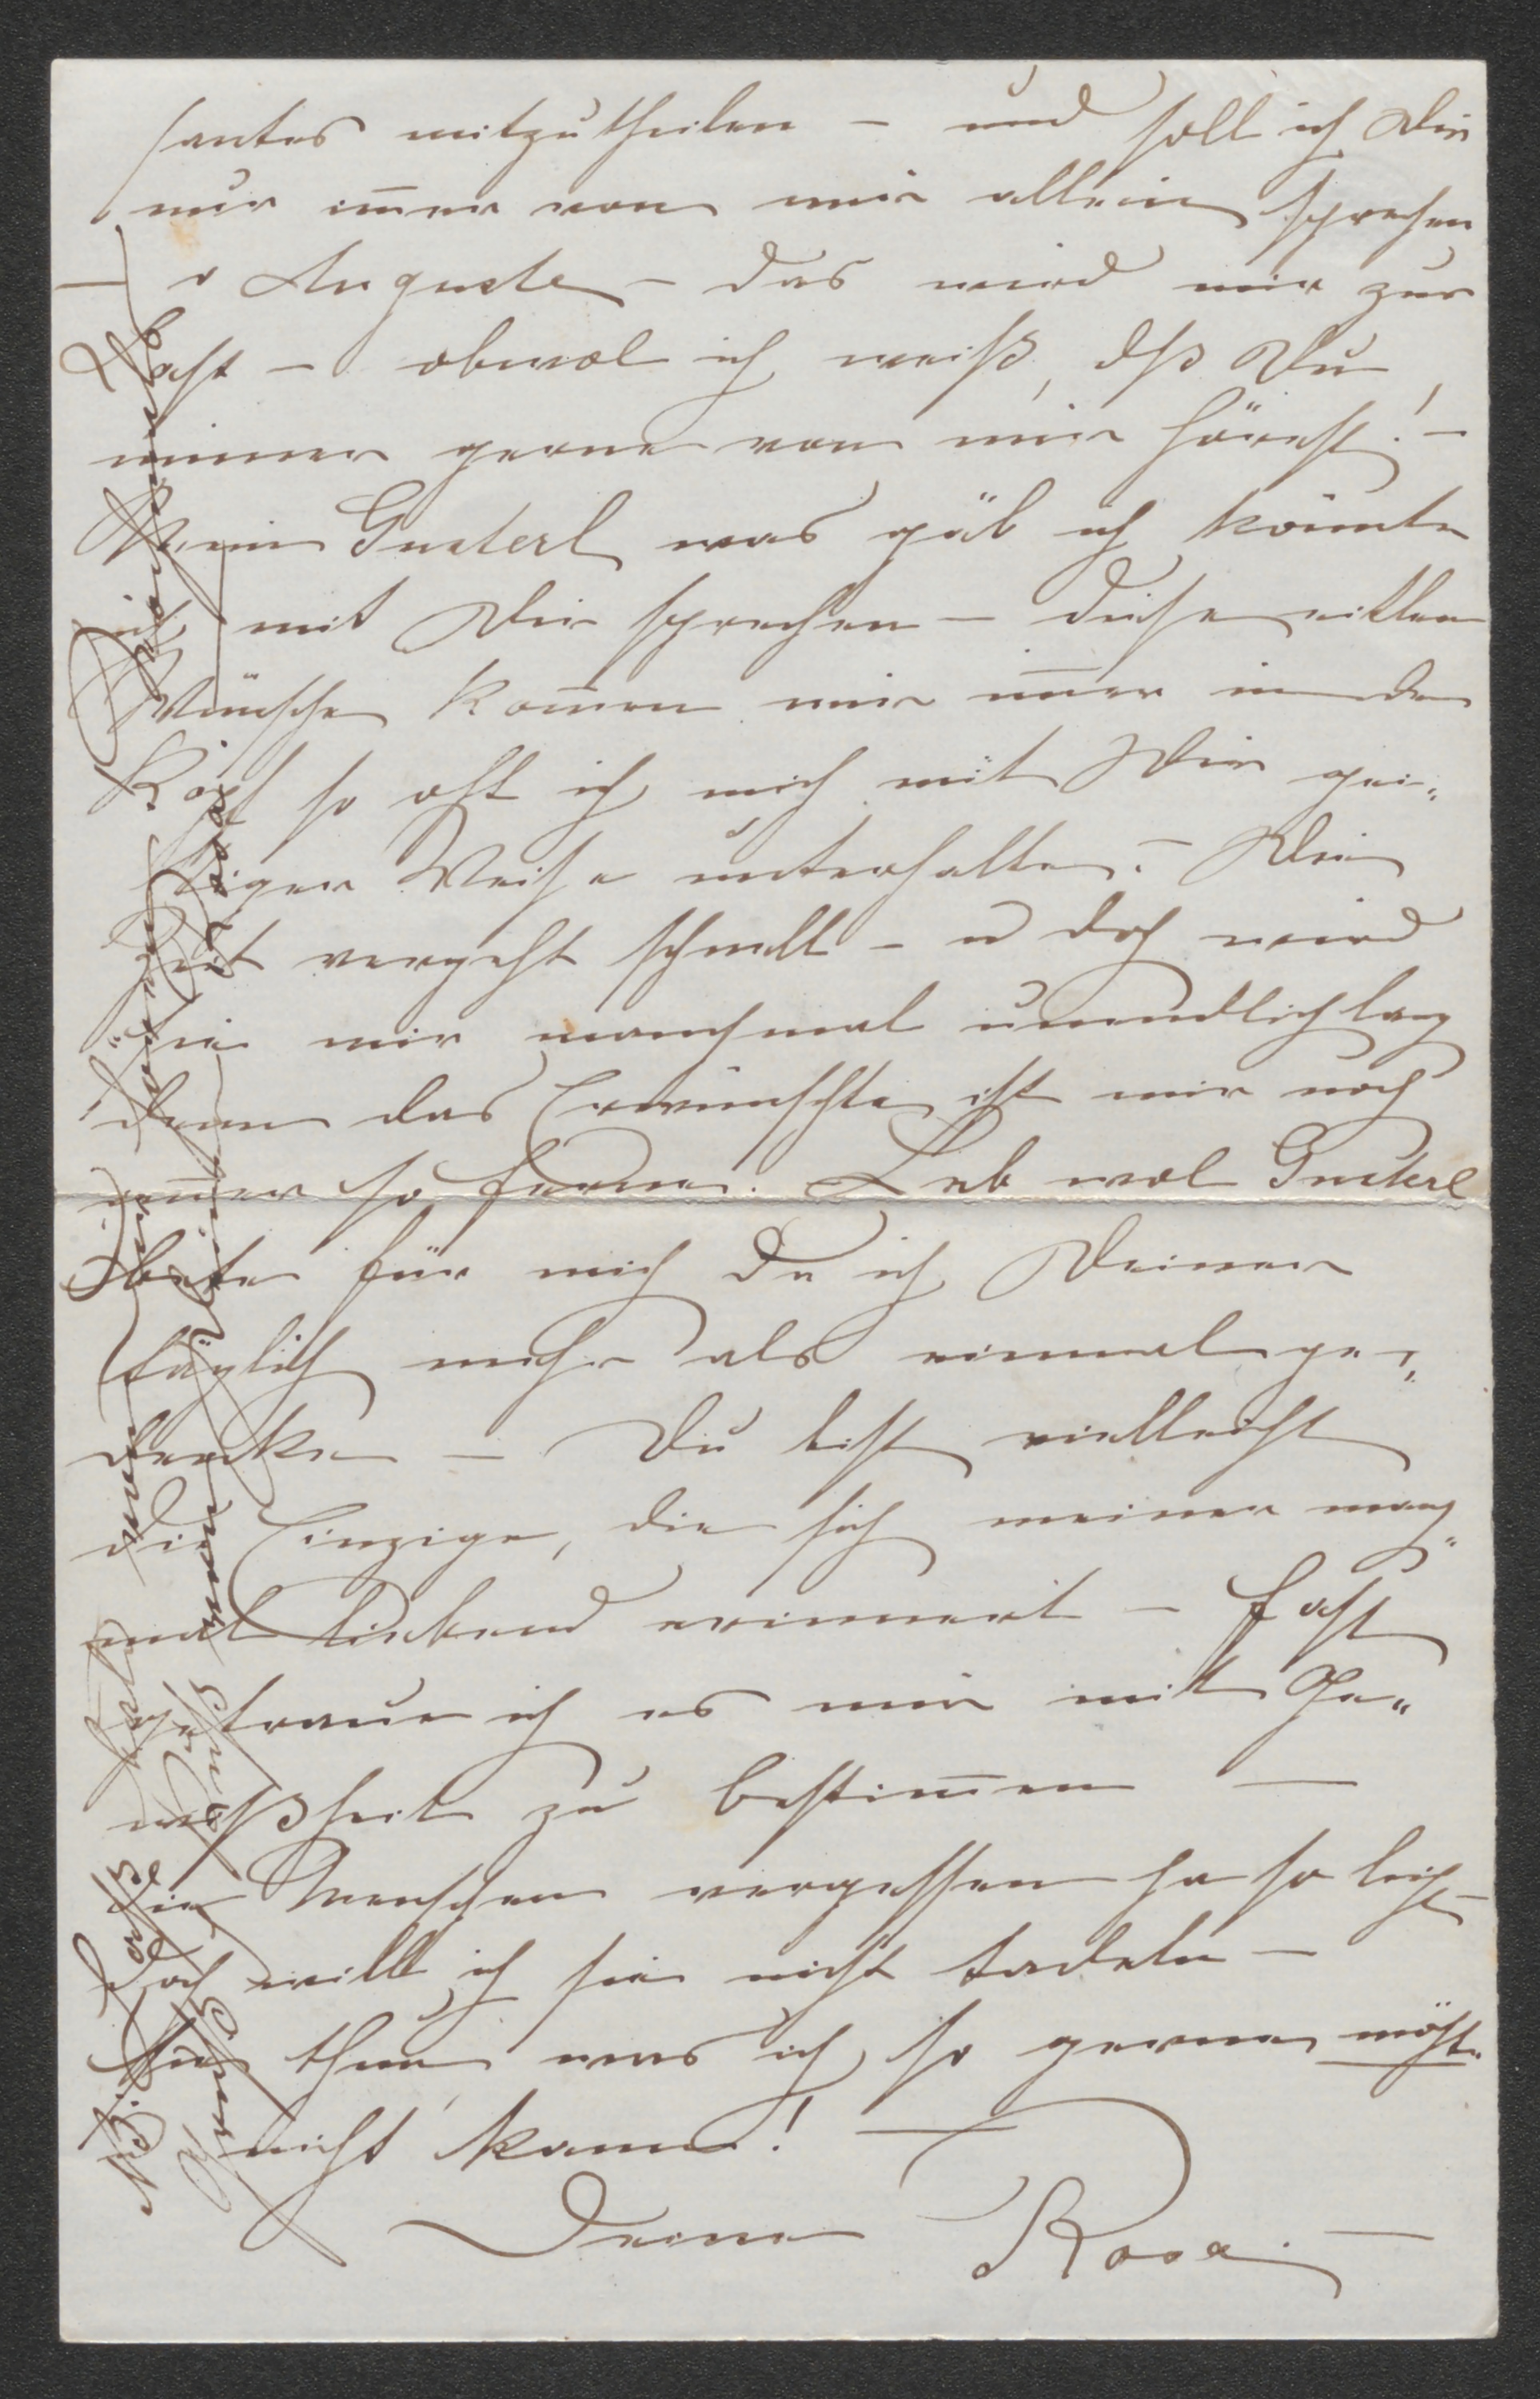 santes mitzutheilen – und soll ich Dir
nur im̄er von mir allein sprechen
– o Auguste – das wird mir zur
Last – obwol ich weiß, dß Du
immer gerne von mir hörest! –
Mein Gusterl was gäb ich könnte
ich mit Dir sprechen – diese eitlen
Wünsche kom̄en mir im̄er in den
Kopf so oft ich mich mit Dir gei„
stiger Weise unterhalte. – Die
Zeit vergeht schnell – u doch wird
sie mir manchmal unendlich lang
denn das Erwünschte ist mir noch
im̄er so ferne. Leb wol Gusterl
bete für mich da ich Deiner
täglich mehr als einmal ge„
denke – Du bist vielleicht
die Einzige, die sich meiner manch„
mal liebend erinnert – fast
getraue ich es mir mit Ge„
wißheit zu bestim̄en –
die Menschen vergessen ja so leicht –
doch will ich sie nicht tadeln –
sie thun was ich so gerne möcht„
nicht kann! –
Deine Rosa. –